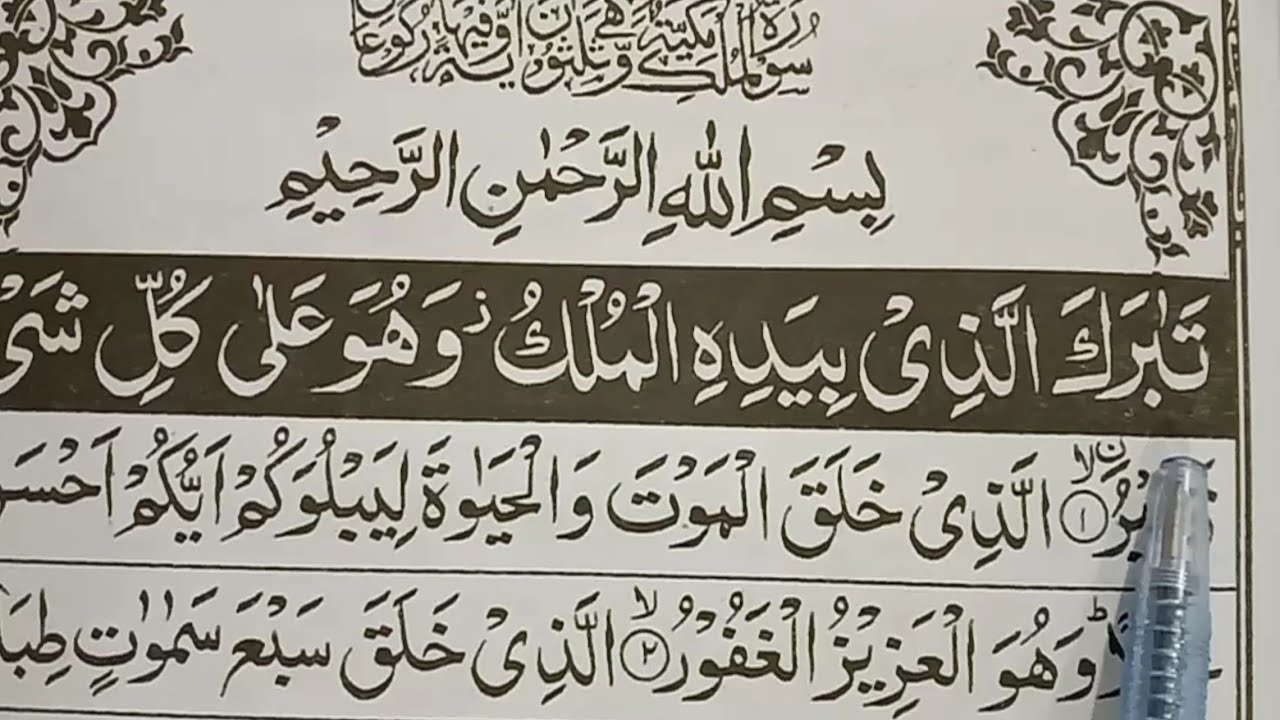 سورة الملك مكية وهي ثلثون اية وفيها ركوعان
بِسْمِ اللّٰهِ الرَّحْمٰنِ الرَّحِيْمِ
تَبٰرَكَ الَّذِيْ بِيَدِهِ الْمُلْكُ ز وَهُوَ عَلٰى كُلِّ شَيْ
يْرُ ۙن ۝١ الَّذِيْ خَلَقَ الْمَوْتَ وَالْحَيٰوةَ لِيَبْلُوَكُمْ اَيُّكُمْ اَحْسَنُ
وَهُوَ الْعَزِيْزُ الْغَفُوْرُ ۙ۝٢ الَّذِيْ خَلَقَ سَبْعَ سَمٰوٰتٍ طِبَا